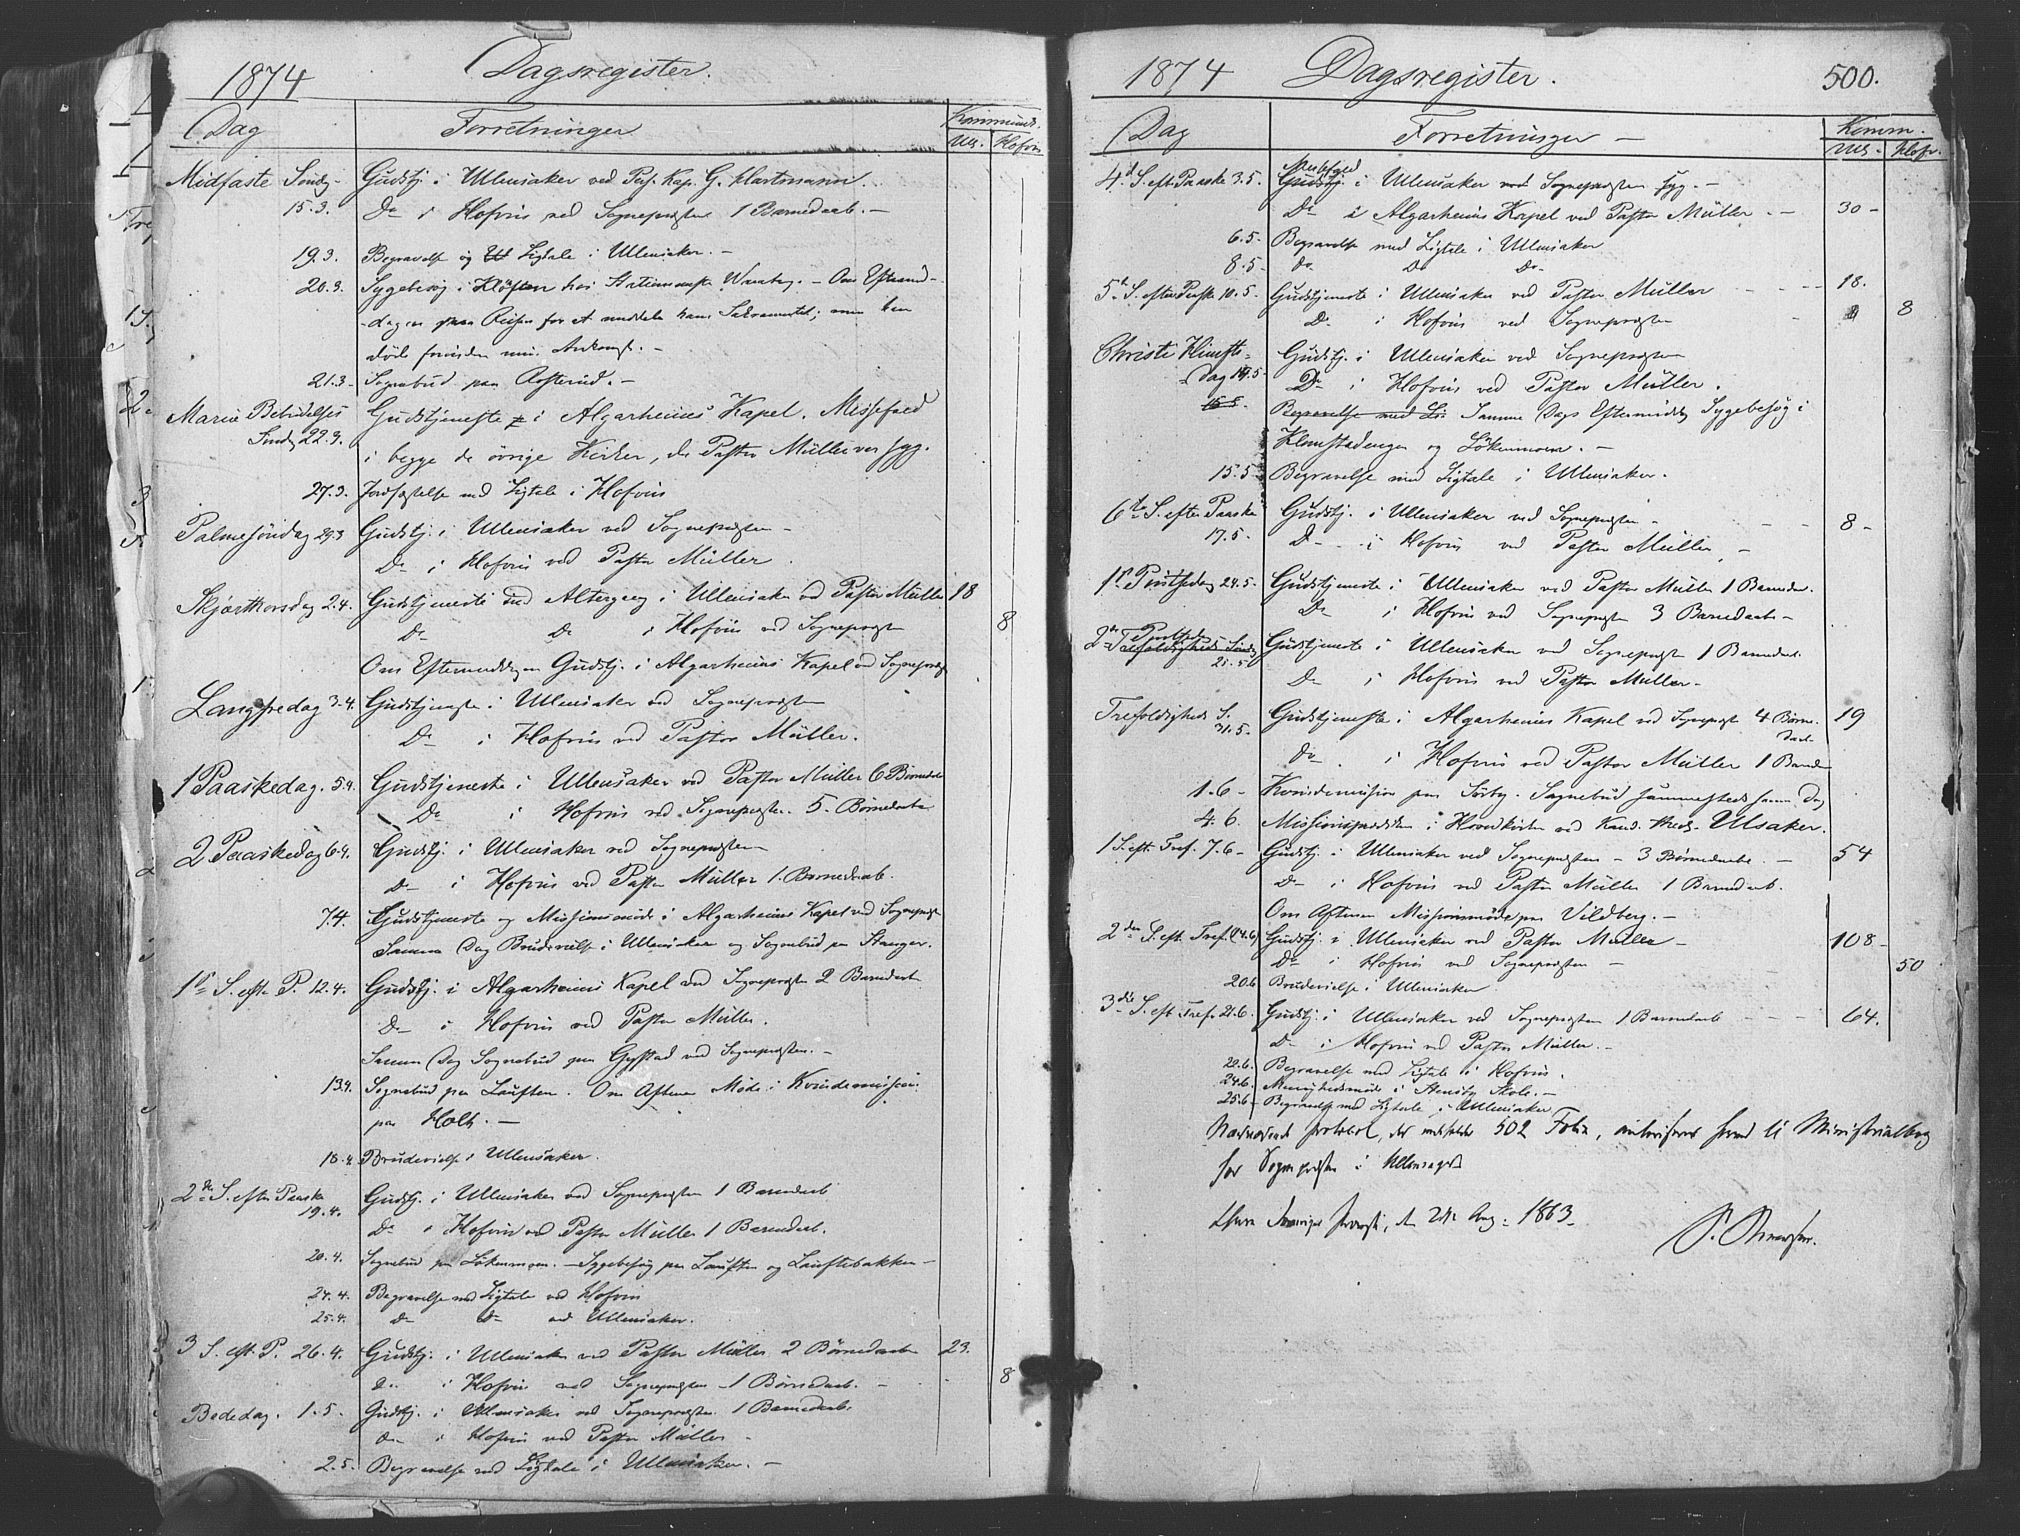 1874 Dagsregister.
Dag Forretninger Kommunik.
Ull. Hofvin
Midfaste Søndg. Gudstj. i Ullensaker ved Pers. Kap. G. Hartmann.
15.3. Do i Hofvin ved Sognepresten 1 Barnedaab. –
19.3. Begravelse og Ligtale i Ullensaker. –
20.3. Sygebesøg i Kløften hos – Om Eftermid-
dagen paa Reisen for at meddele ham Sakramentet; men han
døde forinden min Ankomst. –
21.3. Sognebud paa –
Mariæ Bebudelses Gudstjeneste i Algarheims Kapel. Messefald
Sønd. 22.3. i begge de øvrige Kirker, da Pastor Müller var syg.
27.3. Jordfæstelse med Ligtale i Hofvin
Palmesøndag 29.3 Gudstj. i Ullensaker ved Sognepresten –
Do i Hofvin ved Pastor Müller.
Skjærthorsdag 2.4. Gudstjeneste med Altergang i Ullensaker ved Pastor Müller 18
Do Do i Hofvin ved Sognepresten 8
Om Eftermiddagen Gudstj. i Algarheims Kapel ved Sognepresten
Langfredag 3.4. Gudstjeneste i Ullensaker ved Sognepresten
Do i Hofvin ved Pastor Müller.
1 Paaskedag. 5.4. Gudstjeneste i Ullensaker ved Pastor Müller 6 Børnedaab
Do i Hofvin ved Sognepresten. 5. Børnedaab
2 Paaskedag 6.4. Gudstj. i Ullensaker ved Sognepresten
Do i Hofvin ved Pastor Müller 1. Barnedaab.
7.4. Gudstjeneste og Missionsmøde i Algarheims Kapel ved Sognepresten
Samme Dag Brudevielse i Ullensaker og Sognebud paa Stanger.
1ste S. efter P. 12.4. Gudstj. i Algarheims Kapel ved Sognepresten 2 Barnedaab
Do i Hofvin ved Pastor Müller.
Samme Dag Sognebud paa Gystad ved Sognepresten. –
13.4. Sognebud paa Lauften. Om Aftenen Møde i Kvindemission
paa Holt. –
18.4. Brudevielse i Ullensaker.
2den S. efter Paaske Gudstj. i Ullensaker ved Sognepresten 1 Barnedaab
19.4. Do i Hofvin ved Pastor Müller 1 Barnedaab.
20.4. Sognebud paa Løkenmoen. – Sygebesøg paa Lauften og Lauftebakken –
24.4. Begravelse med Ligtale ved Hofvin
25.4. Do Do ved Ullensaker.
3 S. eft. P. 26.4. Gudstj. i Ullensaker ved Pastor Müller 2 Børnedaab 23.
Do i Hofvin ved Sognepresten 1 Børnedaab. – 8
Bededag. 1.5. Gudstj. i Ullensaker ved Sognepresten 1 Barnedaab.
Do i Hofvin ved Pastor Müller –
2.5. Begravelse med Ligtale i Ullensaker. –
1874 Dagsregister. 500.
Dag Forretninger – Komm.
Ull. Hofv.
Messefald
4de S. eft. Paaske 3.5. Gudstj. i Ullensaker ved Sognepresten syg. –
Do i Algarheims Kapel ved Pastor Müller. – 30 –
6.5. Begravelse med Ligtale i Ullensaker
8.5 – do Do Do –
5te S. efter Paaske 10.5. Gudstjeneste i Ullensaker ved Pastor Müller – – – 18.
Do i Hofvin ved Sognepresten – 8
Christi Himfts- Gudstj. i Ullensaker ved Sognepresten
dag 14.5 Do i Hofvin ved Pastor Müller.
15.5. Begravelse med Li Samme Dags Eftermiddag Sygebesøg i
Klomstadengen og Løkenmoen. –
15.5 Begravelse med Ligtale i Ullensaker.
6te S. efter Paaske Gudstj. i Ullensaker ved Sognepresten – – – 8 –
17.5. Do i Hofvin ved Pastor Müller –
1ste Pintsedag 24.5. Gudstjeneste i Ullensaker ved Pastor Müller 1 Barnedaab.
Do i Hofvin ved Sognepresten 3 Barnedaab –
Pintsedag
2den Trefoldigheds Sønd. Gudstjeneste i Ullensaker ved Sognepresten 1 Barnedaab.
25.5 Do i Hofvin ved Pastor Müller –
Trefoldigheds S. Gudstjeneste i Algarheims Kapel ved Sognepresten 4 Børne- 19
31.5. daab
Do. i Hofvin ved Pastor Müller 1 Barned
1.6 – Kvindemission paa Sørby. Sognebud sammesteds samme Dag
4.6. Missionspræken i Hovedkirken ved Kand. theol. Ulsaker.
1 S. eft. Tref. 7.6 – Gudstj. i Ullensaker ved Sognepresten – 3 Børnedaab. – 54
Do i Hofvin ved Pastor Müller 1 Barnedaab.
Om Aftenen Missionsmøde paa Vildberg. –
2den S. eft. Tref. (14.6) Gudstj. i Ullensaker ved Pastor Müller – 108 –
Do i Hofvin ved Sognepresten – 50
20.6 Brudevielse i Ullensaker
3die S. eft. Tref. 21.6. Gudstj. i Ullensaker ved Sognepresten 1 Barnedaab – – 64.
Do i Hofvin ved Pastor Müller. –
22.6. Begravelse med Ligtale i Hofvin.
24.6. Menighedsmøde i Stensby Skole. –
25.6 – Begravelse med Ligtale i Ullensaker
Nærværende Protocol, der indeholder 502 Folier, autoriseres herved til Ministerialbog
for Sognepresten i Ullensager
Provsti, den 24de Aug. 1863.